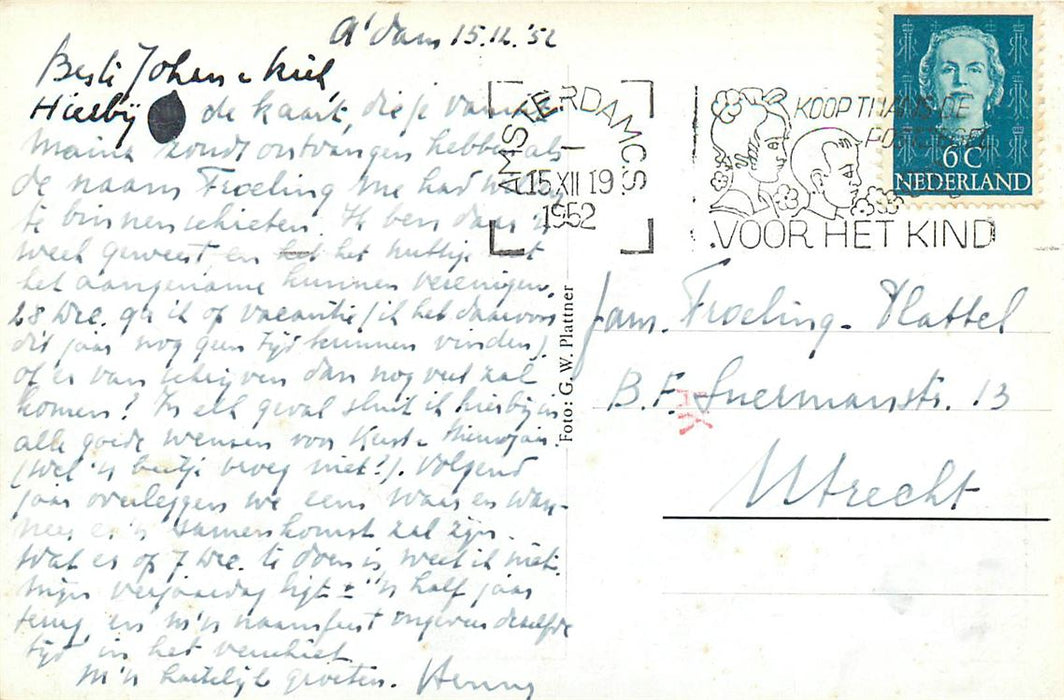 A'dam 15.12.'52
Beste Johan e Riel
Hierbij de kaart, die je van
Maina zondt ontvangen hebben als
de naam Froeling me had
te binnenschieten. Ik ben daar 'n
week geweest en het nuttige met
het aangename kunnen verenigen.
28 Dec. ga ik op vacantie (ik heb daarvoor
dit jaar nog geen tijd kunnen vinden)
of er van schrijven dan nog veel zal
komen? In elk geval sluit ik hierbij in
alle goede wensen voor Kerst e Nieuwjaar
(wel 'n beetje vroeg niet?). Volgend
jaar overleggen we eens waar en wan-
neer er 'n samenkomst zal zijn.
Wat er op 7 Dec. te doen is, weet ik niet.
Mijn verjaardag ligt ± 'n half jaar
terug, en m'n naamfeest ongeveer dezelfde
tijd in het verschiet.
M'n hartelijke groeten. Henny
Foto: G. W. Plattner
AMSTERDAM C.S.
1
15 XII 19
1952
KOOP THANS DE
VOOR HET KIND
6 C
NEDERLAND
Fam. Froeling - Plattel
B.F. Suermanstr. 13
Utrecht